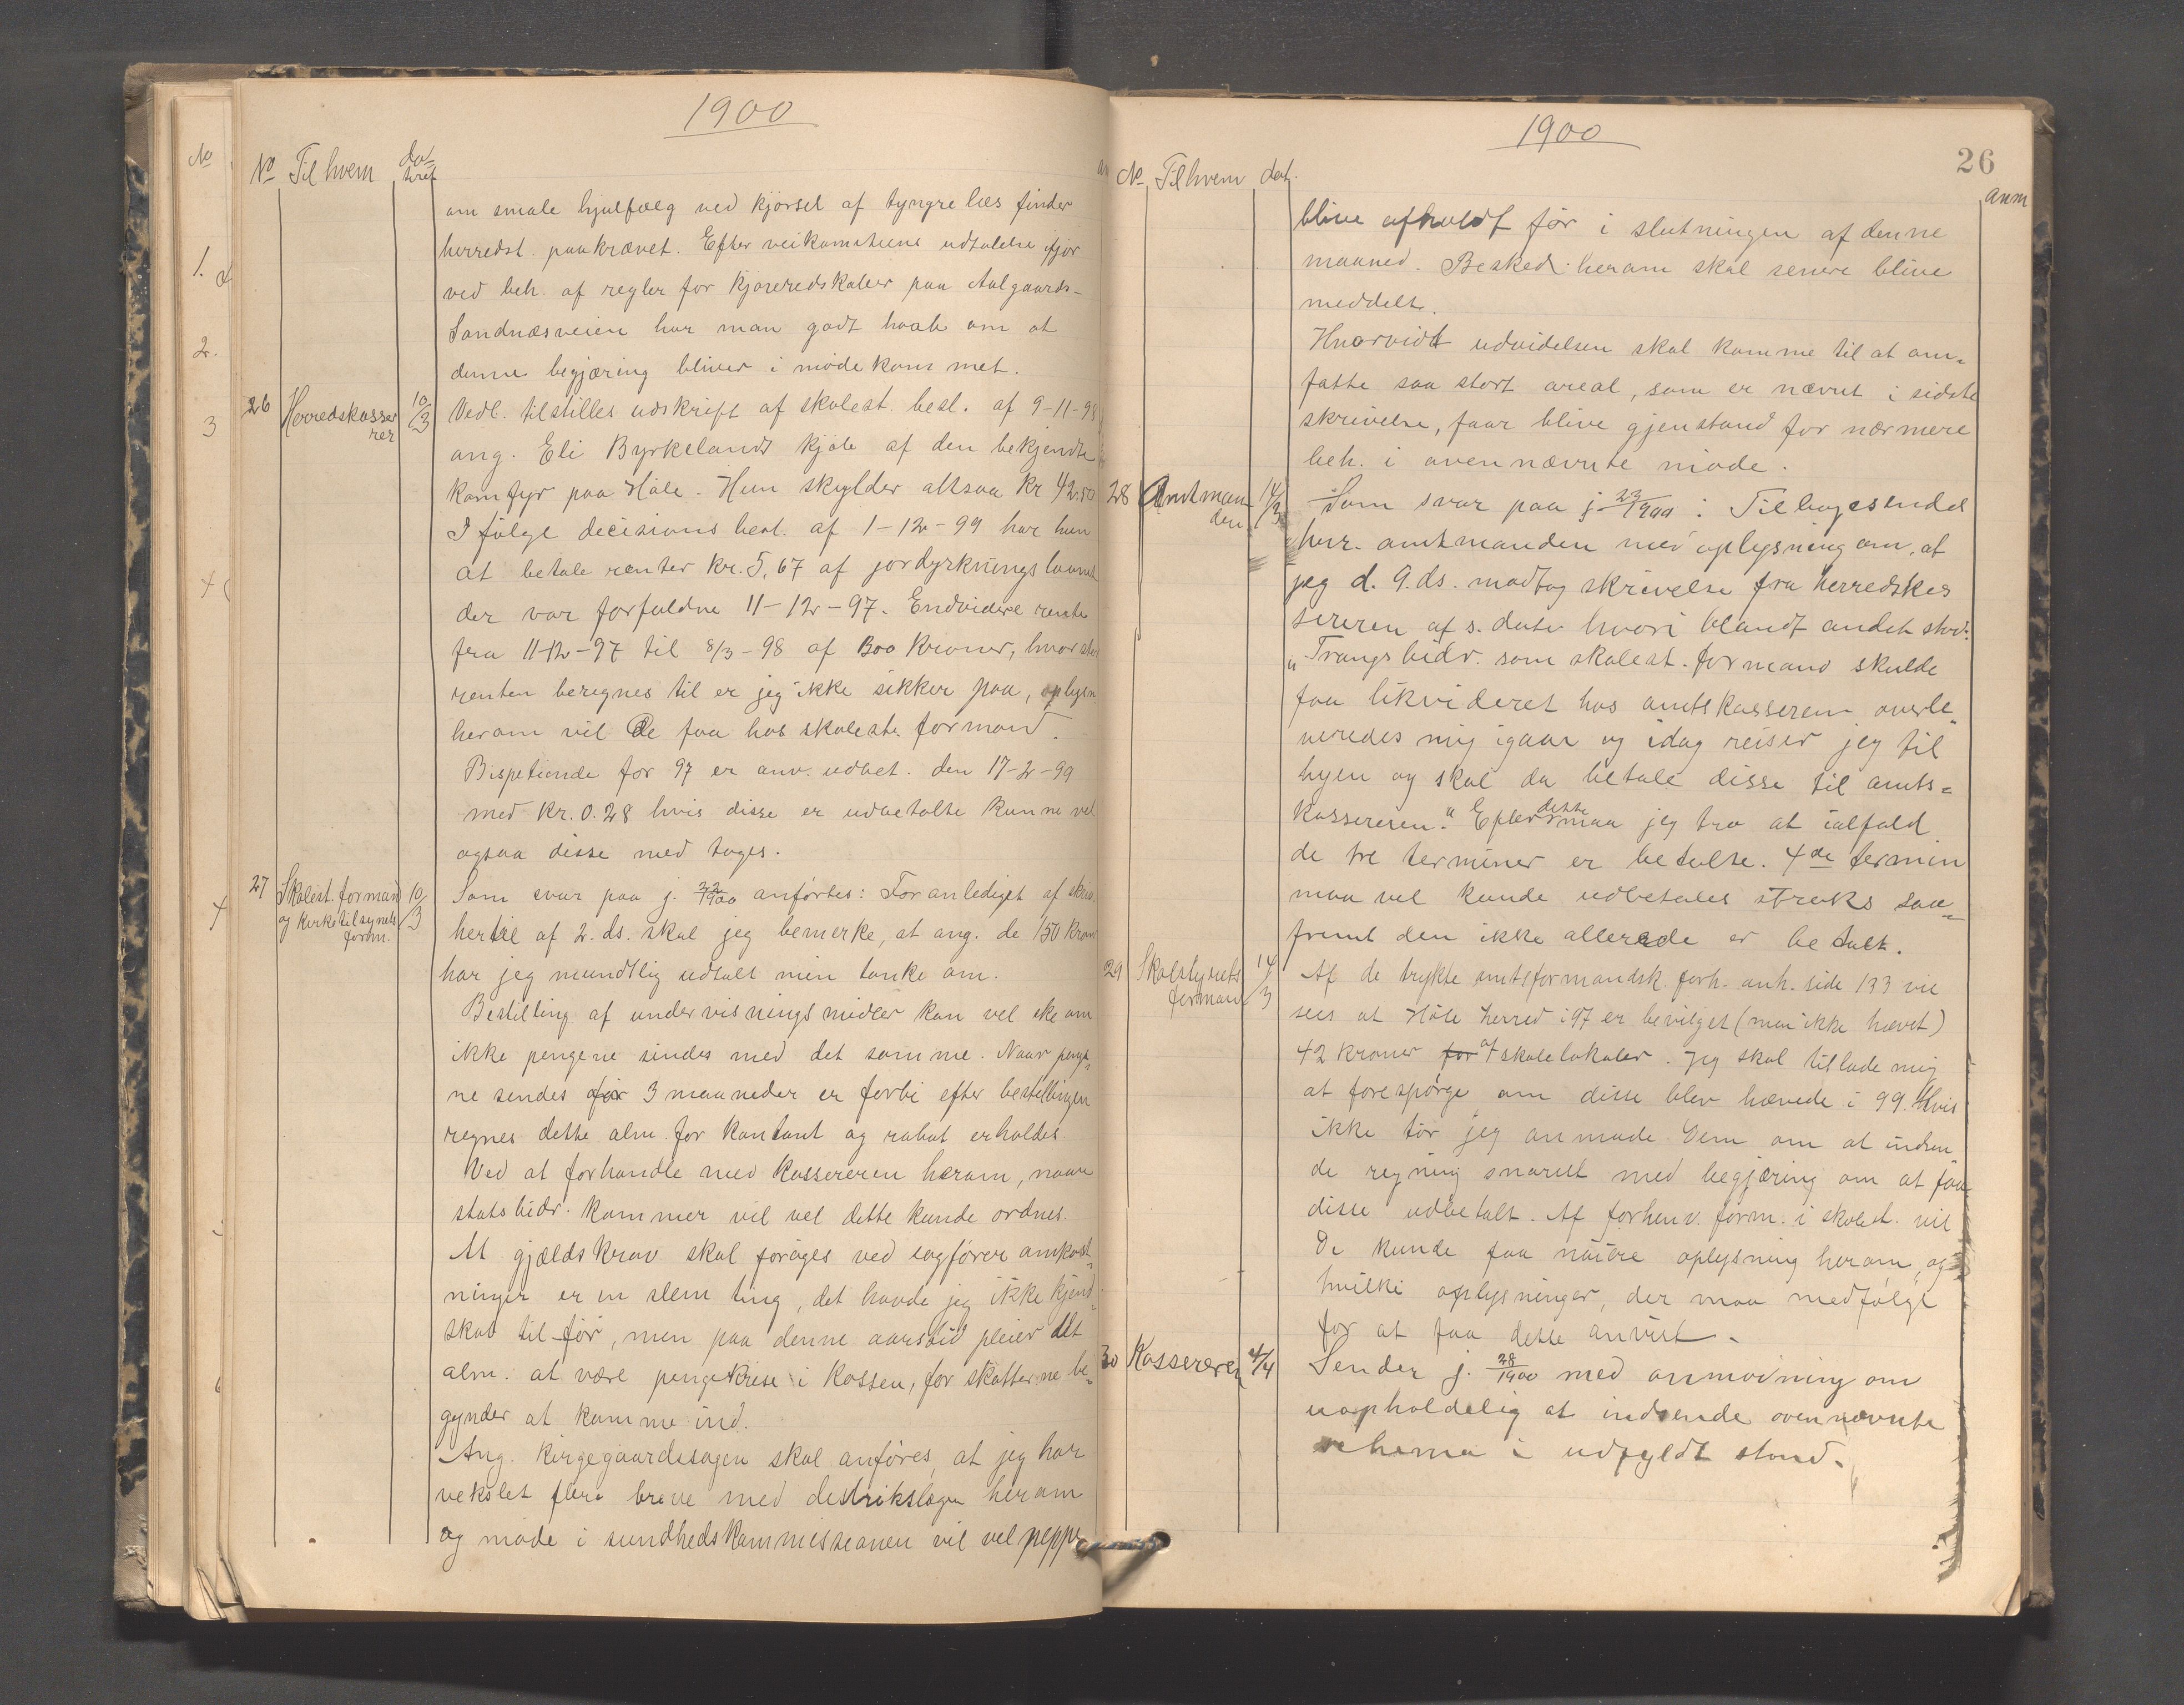 1900
No Til hvem dateret
om smale hjulfælg ved kjørsel af tyngre læs finder
herredst. paakrævet. Efter veikomiteens udtalelse ifjor
ved beh. af regler for kjøreredskaber paa Aalgaards-
Sandnæsveien har man godt haab om at
denne begjæring bliver imødekommet.
26 Herredskasserer 10/3 Vedl. tilstilles udskrift af skolest. besl. af 9-11-98
ang. Eli Byrkelands kjøb af den bekjendte
komfyr paa Høle. Hun skylder altsaa kr 42.50
I følge decisions besl. af 1-12-99 har hun
at betale renter kr. 5,67 af jordyrkningslaanet
der var forfaldne 11-12-97. Endvidere rente
fra 11-12-97 til 8/3-98 af 300 kroner, hvor stor
renten beregnes til er jeg ikke sikker paa, oplysn
herom vil De faa hos skolest. formand.
Bispetiende for 97 er anv. udbet. den 17-2-99
med kr. 0.28 hvis disse er udbetalte kunne vel
ogsaa disse med tages.
27 Skolest. formand og kirketilsynets form. 10/3 Som svar paa j. 22/1900 anførtes: Foranlediget af skriv.
hertil af 2. ds. skal jeg bemerke, at ang. de 150 kroner
har jeg mundtlig udtalt min tanke om.
Bestilling af undervisningsmidler kan vel ske om
ikke pengene sendes med det samme. Naar penge-
ne sendes før 3 maaneder er forbi efter bestillingen
regnes dette alm. for kontant og rabat erholdes.
Ved at forhandle med kassereren herom, naar
statsbidr. kommer vil vel dette kunde ordnes.
At gjældskrav skal forøges ved sagfører omkost-
ninger er en slem ting, det havde jeg ikke kjend-
skab til før, men paa denne aarstid pleier det
alm. at være pengekrise i kassen, før skatterne be-
gynder at komme ind.
Ang. kirgegaardssagen skal anføres, at jeg har
vekslet flere breve med distrikslægen herom
og møde i sundhedskommissionen vil vel neppe
1900
26
No Til hvem dat. anm
blive afholdt før i slutningen af denne
maaned. Besked herom skal senere blive
meddelt.
Hvorvidt udvidelsen skal komme til at om-
fatte saa stort areal, som er nævnt i sidste
skrivelse, faar blive gjenstand for nærmere
beh. i ovennævnte møde.
28 Amtmanden 14/3 Som svar paa j. 23/1900: Tilbagesendes
herr. amtmanden med oplysning om, at
jeg d. 9. ds. modtog skrivelse fra herredskas
sereren af s. dato hvori blandt andet stod:
"Trangsbidr. som skolest. formand skulde
faa likvideret hos amtskassereren overle-
veredes mig igaar og idag reiser jeg til
byen og skal da betale disse til amts-
kassereren." Efter dette maa jeg tro at ialfald
de tre terminer er betalte. 4de termin
maa vel kunde udbetales straks saa-
fremt den ikke allerede er betalt.
29 Skolstyrets formand 14/3 Af de trykte amtsformandsk. forh. anh. side 133 vil
sees at Høle herred i 97 er bevilget (men ikke hævet)
42 kroner for af skolelokaler. Jeg skal tillade mig
at forespørge om disse blev hævede i 99. Hvis
ikke tør jeg anmode Dem om at indsen-
de regning snarest med begjæring om at faa
disse udbetalt. Af forhenv. form. i skolest. vil
De kunde faa nøiere oplysning herom, og
hvilke oplysninger, der maa medfølge
for at faa dette anvist.
30 Kassereren 4/4 Sender j. 28/1900 med anmodning om
uopholdelig at indsende ovennævnte
schema i udfyldt stand.